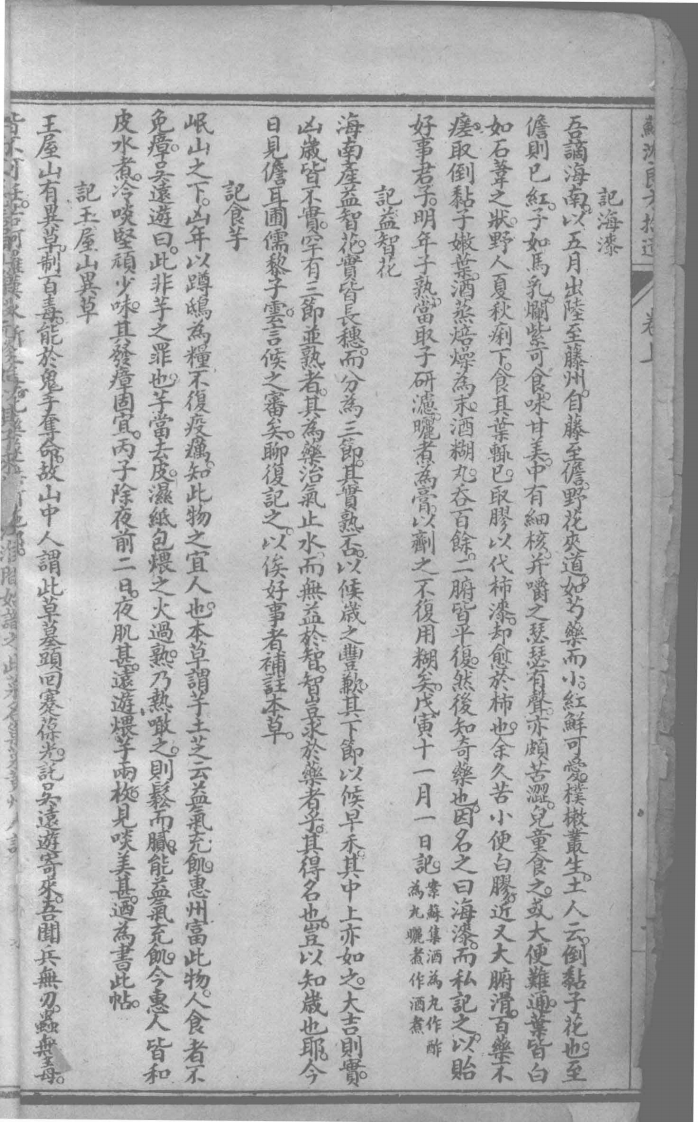 記海漆
吾謫海南以五月出陸至藤州自藤至儋野花夾道如芍藥而小紅鮮可愛樸樕叢生土人云倒黏子花也至
儋則已紅子如馬乳爛紫可食味甘美中有細核并嚼之瑟瑟有聲亦頗苦澀兒童食之或大便難通葉皆白
如石葦之狀野人夏秋痢下食其葉輒已取膠以代柿漆却愈於柿也余久苦小便白膠近又大腑滑百藥不
瘥取倒黏子嫩葉酒蒸焙燥為末酒糊丸吞百餘二腑皆平復然後知奇藥也因名之曰海漆而私記之以貽
好事君子明年子熟當取子研濾曬煮為膏以劑之不復用糊矣戊寅十一月一日記案蘇集酒為丸作酢
為丸曬煮作酒煮
記益智花
海南產益智花實皆長穗而分為三節其實熟否以候歲之豐歉其下節以候早禾其中上亦如之大吉則實
凶歲皆不實罕有三節並熟者其為藥治氣止水而無益於智智豈求於藥者乎其得名也豈以知歲也耶今
日見儋耳圃儒黎子雲言候之審矣聊復記之以俟好事者補註本草
記食芋
岷山之下凶年以蹲鴟為糧不復疫癘知此物之宜人也本草謂芋土芝云益氣充飢惠州富此物人食者不
免瘴吳遠遊曰此非芋之罪也芋當去皮濕紙包煨之火過熟乃熱噉之則鬆而膩能益氣充飢今惠人皆和
皮水煮冷啖堅頑少味其發瘴固宜丙子除夜前二日夜肌甚遠遊煨芋兩枚見啖美甚迺為書此帖
記王屋山異草
王屋山有異草制百毒能於鬼手奪命故山中人謂此草墓頭回蹇葆光託吳遠遊寄來吾聞兵無刃蟲無毒